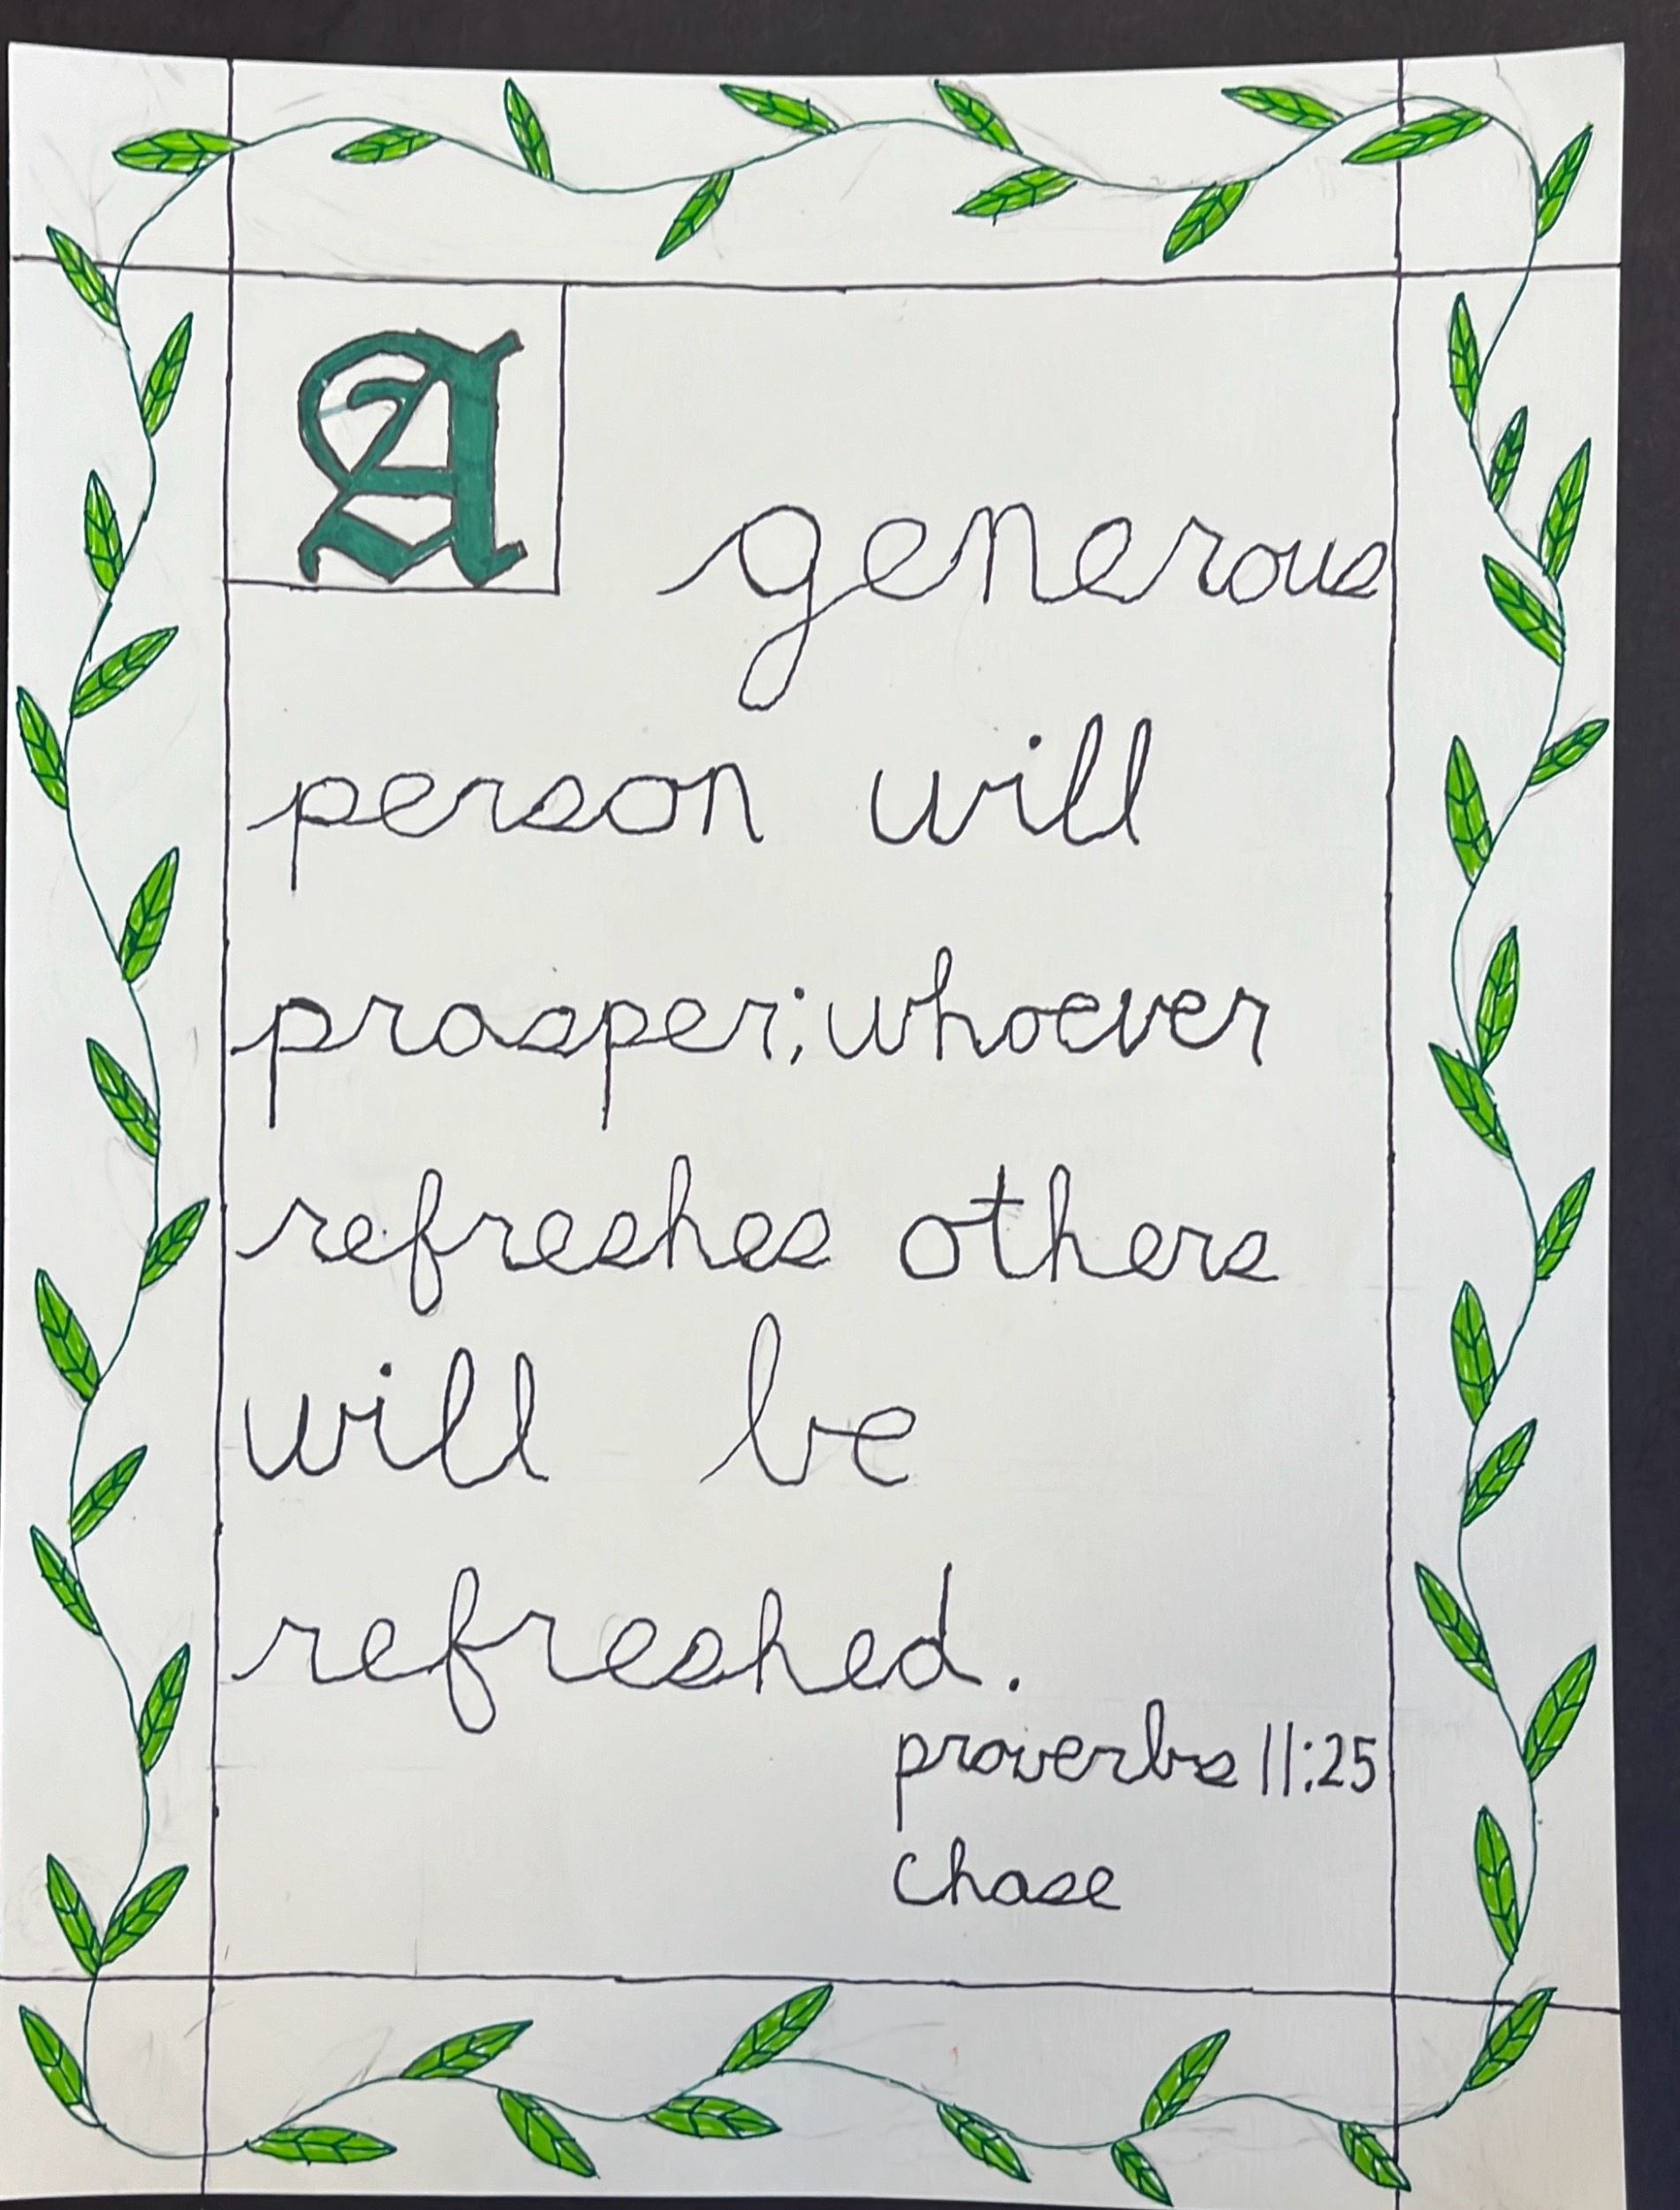 A generous
person will
prosper; whoever
refreshes others
will be
refreshed.
proverbs 11:25
chase